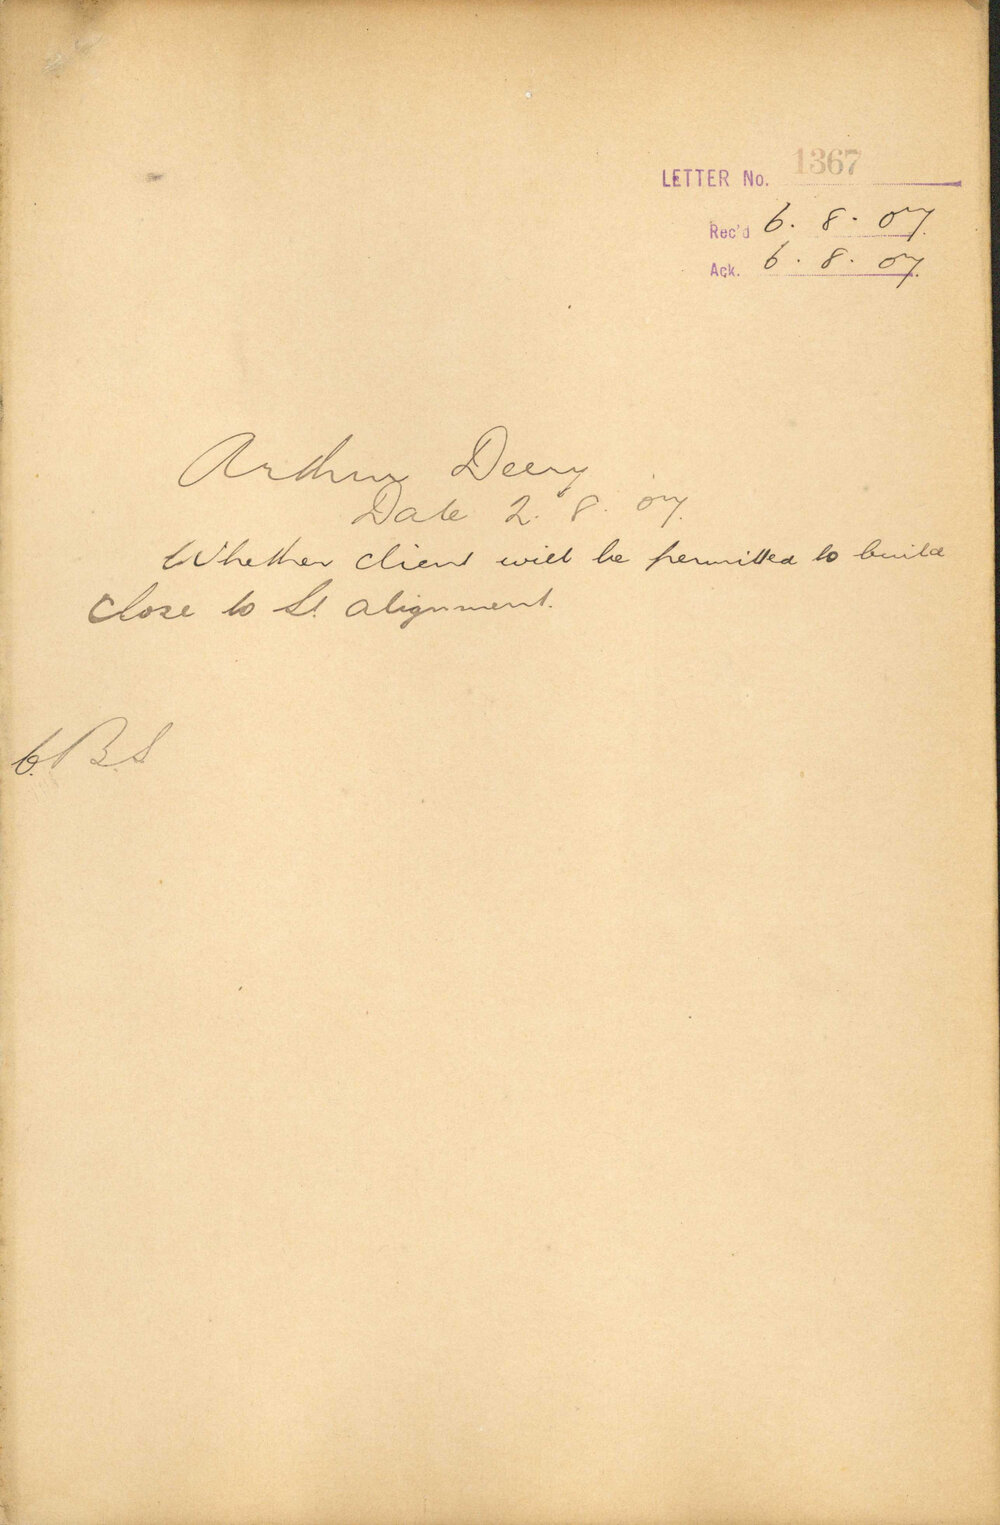 LETTER No. 1367
Rec'd 6. 8. 07.
Ack. 6. 8. 07.
Arthur Deery
Date 2. 8. 07.
Whether client will be permitted to build
close to St. alignment.
C.B.S